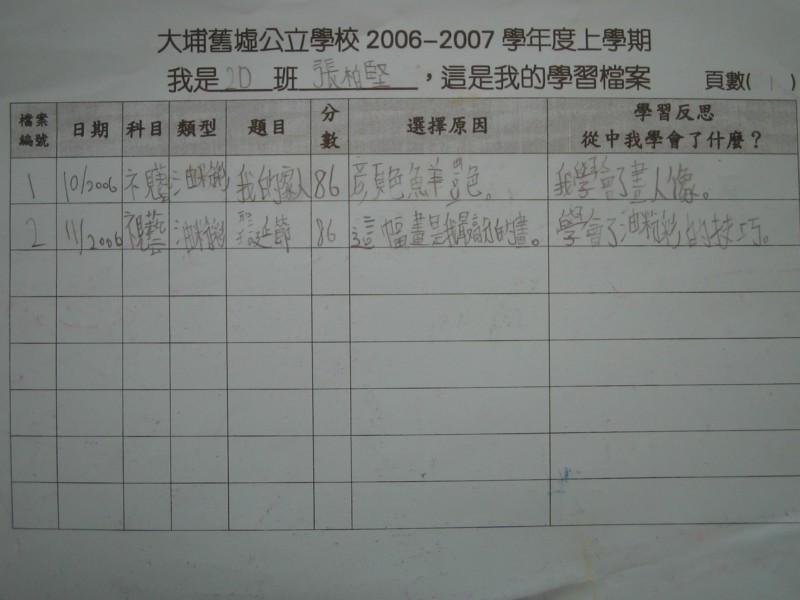 大埔舊墟公立學校 2006-2007 學年度上學期
我是 2D 班 張柏堅 ，這是我的學習檔案 頁數( 1 )
檔案編號 日期 科目 類型 題目 分數 選擇原因 學習反思 從中我學會了什麼？
1 10/2006 視藝 油粉彩 我的家人 86 顏色鮮豔。 我學會了畫人像。
2 11/2006 視藝 油粉彩 聖誕節 86 這幅畫是我最高分的畫。 學會了油粉彩的技巧。